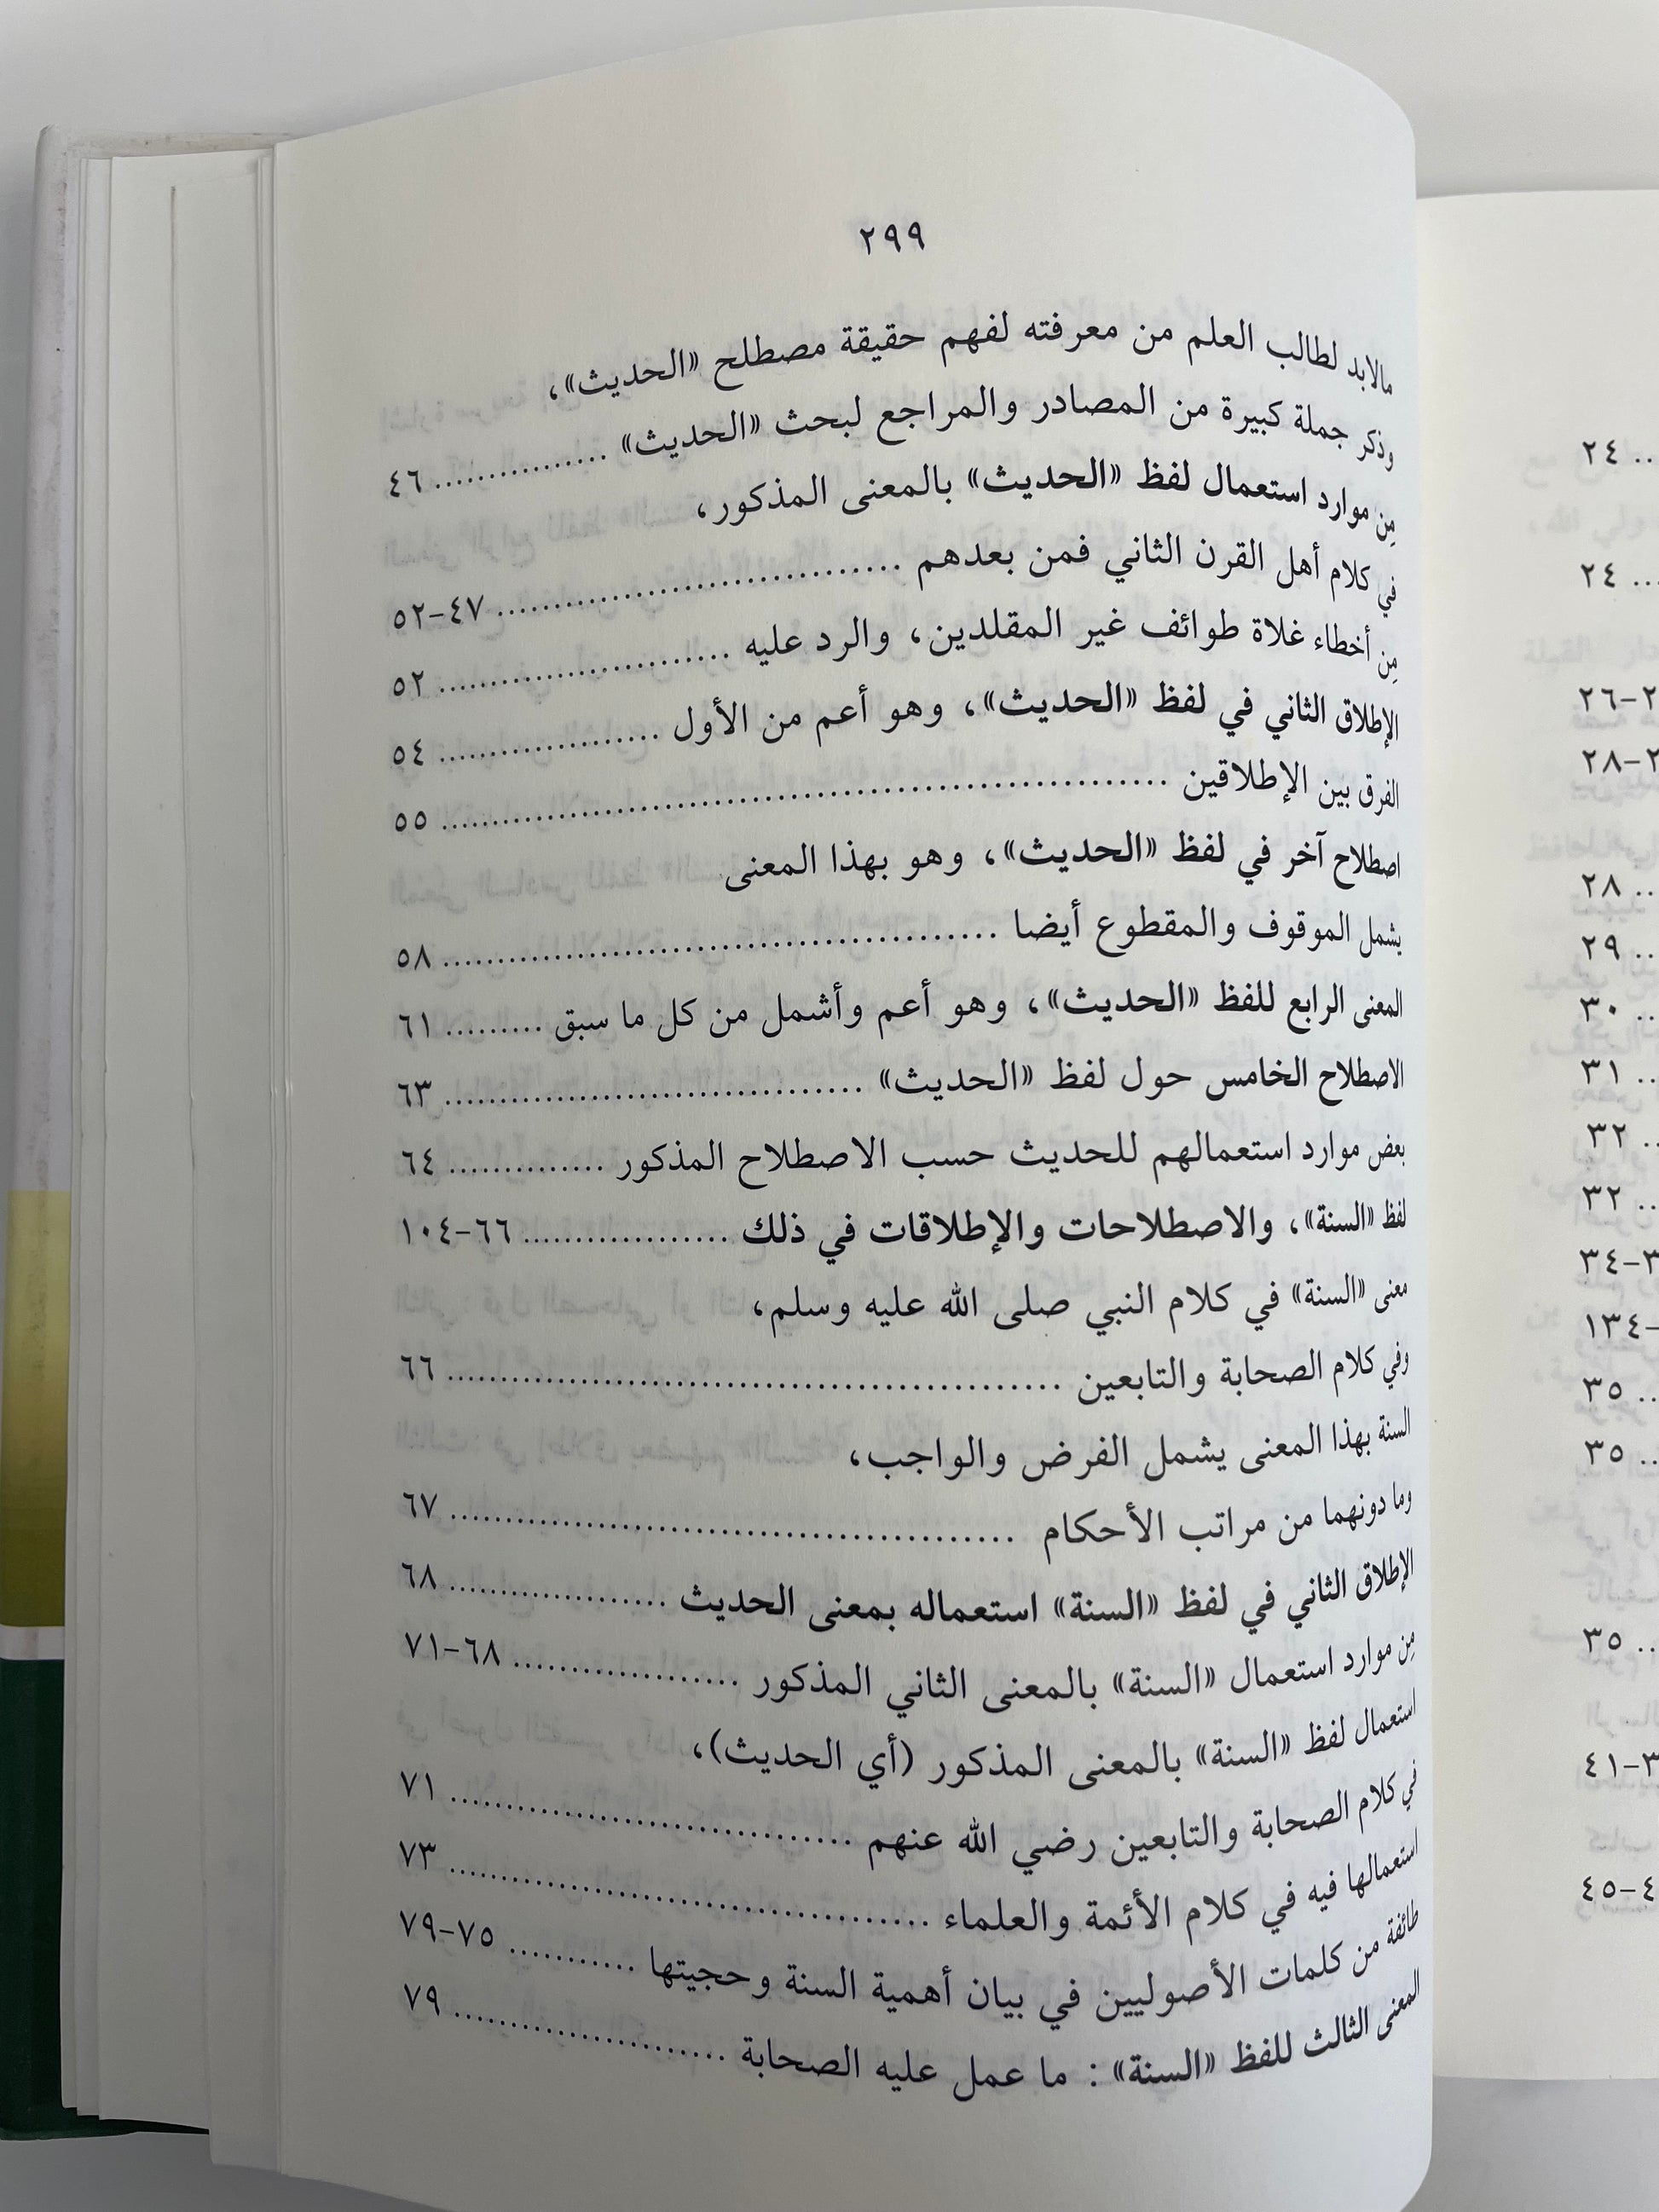 ٢٩٩
مالابد لطالب العلم من معرفته لفهم حقيقة مصطلح «الحديث»،
وذكر جملة كبيرة من المصادر والمراجع لبحث «الحديث» ............... ٤٦
مِن موارد استعمال لفظ «الحديث» بالمعنى المذكور،
في كلام أهل القرن الثاني فمن بعدهم ............................... ٤٧-٥٢
مِن أخطاء غلاة طوائف غير المقلدين، والرد عليه ........................ ٥٢
الإطلاق الثاني في لفظ «الحديث»، وهو أعم من الأول .................. ٥٤
الفرق بين الإطلاقين ............................................................ ٥٥
اصطلاح آخر في لفظ «الحديث»، وهو بهذا المعنى
يشمل الموقوف والمقطوع أيضا ............................................ ٥٨
المعنى الرابع للفظ «الحديث»، وهو أعم وأشمل من كل ما سبق ......... ٦١
الاصطلاح الخامس حول لفظ «الحديث» ................................. ٦٣
بعض موارد استعمالهم للحديث حسب الاصطلاح المذكور .............. ٦٤
لفظ «السنة»، والاصطلاحات والإطلاقات في ذلك .................. ٦٦-١٠٤
معنى «السنة» في كلام النبي صلى الله عليه وسلم،
وفي كلام الصحابة والتابعين ................................................ ٦٦
السنة بهذا المعنى يشمل الفرض والواجب،
وما دونهما من مراتب الأحكام ............................................. ٦٧
الإطلاق الثاني في لفظ «السنة» استعماله بمعنى الحديث .................. ٦٨
مِن موارد استعمال «السنة» بالمعنى الثاني المذكور .................. ٦٨-٧١
استعمال لفظ «السنة» بالمعنى المذكور (أي الحديث)،
في كلام الصحابة والتابعين رضي الله عنهم ............................... ٧١
استعمالها فيه في كلام الأئمة والعلماء ..................................... ٧٣
طائفة من كلمات الأصوليين في بيان أهمية السنة وحجيتها ........... ٧٥-٧٩
المعنى الثالث للفظ «السنة» : ما عمل عليه الصحابة ...................... ٧٩
.. ٢٤
... ٢٤
.. ٢٨
.. ٢٩
.. ٣٠
.. ٣١
.. ٣٢
.. ٣٢
.. ٣٥
.. ٣٥
.. ٣٥